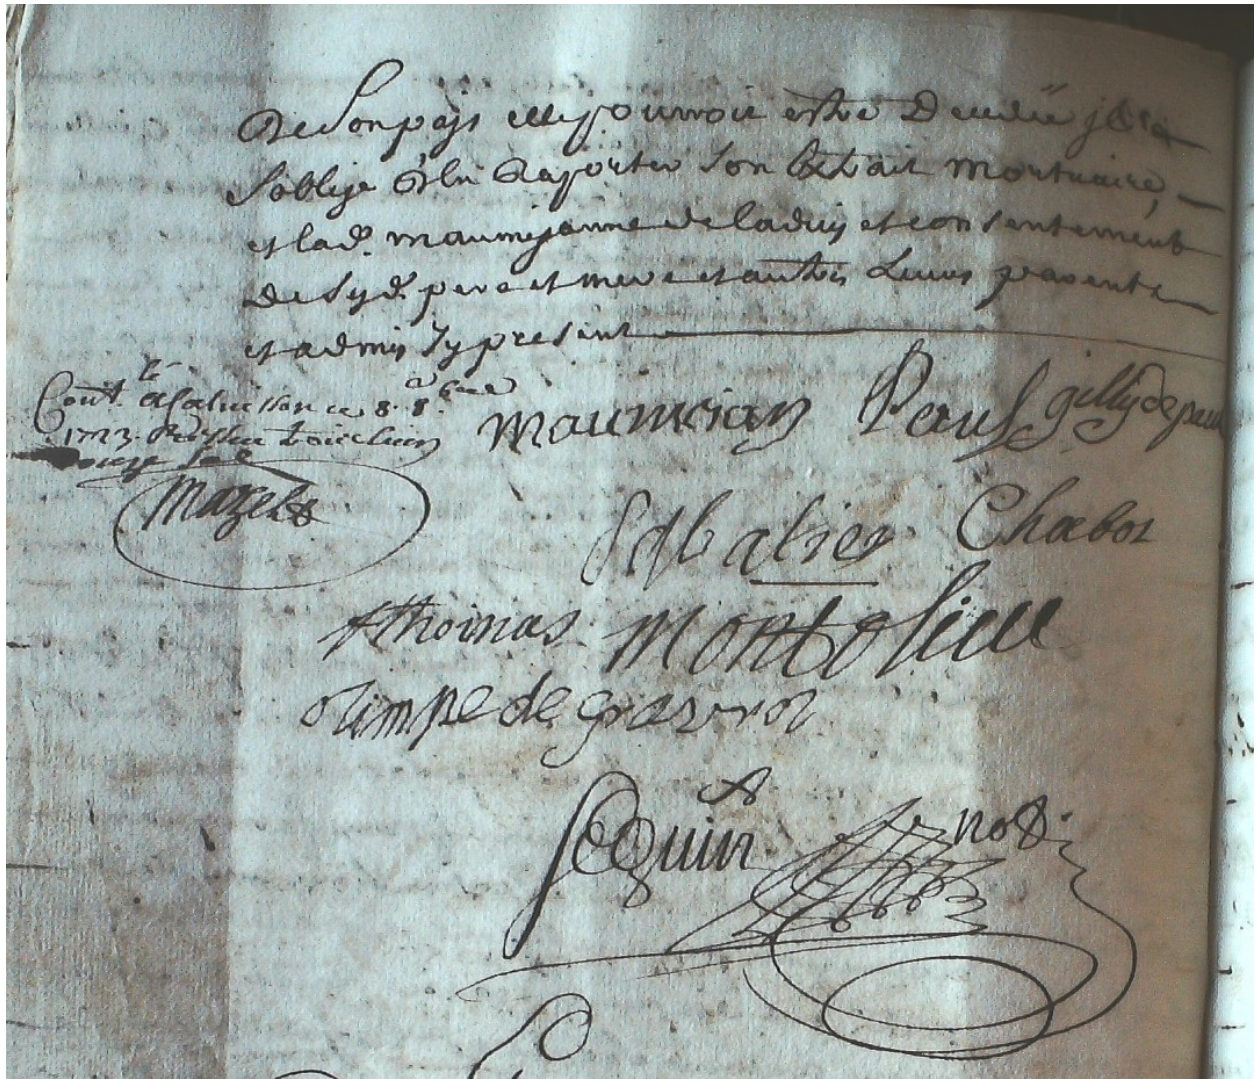 De son pais elle pourroit estre
s'oblige de lui raporter son extrait mortuaire,
et lad. maumejanne de l'advis et consentement
de sesd. pere et mere et autres leurs parents
et admis sy present
Cont. a le 8. 8.
1723.
Mazels
maumejan Paul gilly de paul
Sabatier Chabot
thomas montolieu
olimpe de graverol
Seguin not.